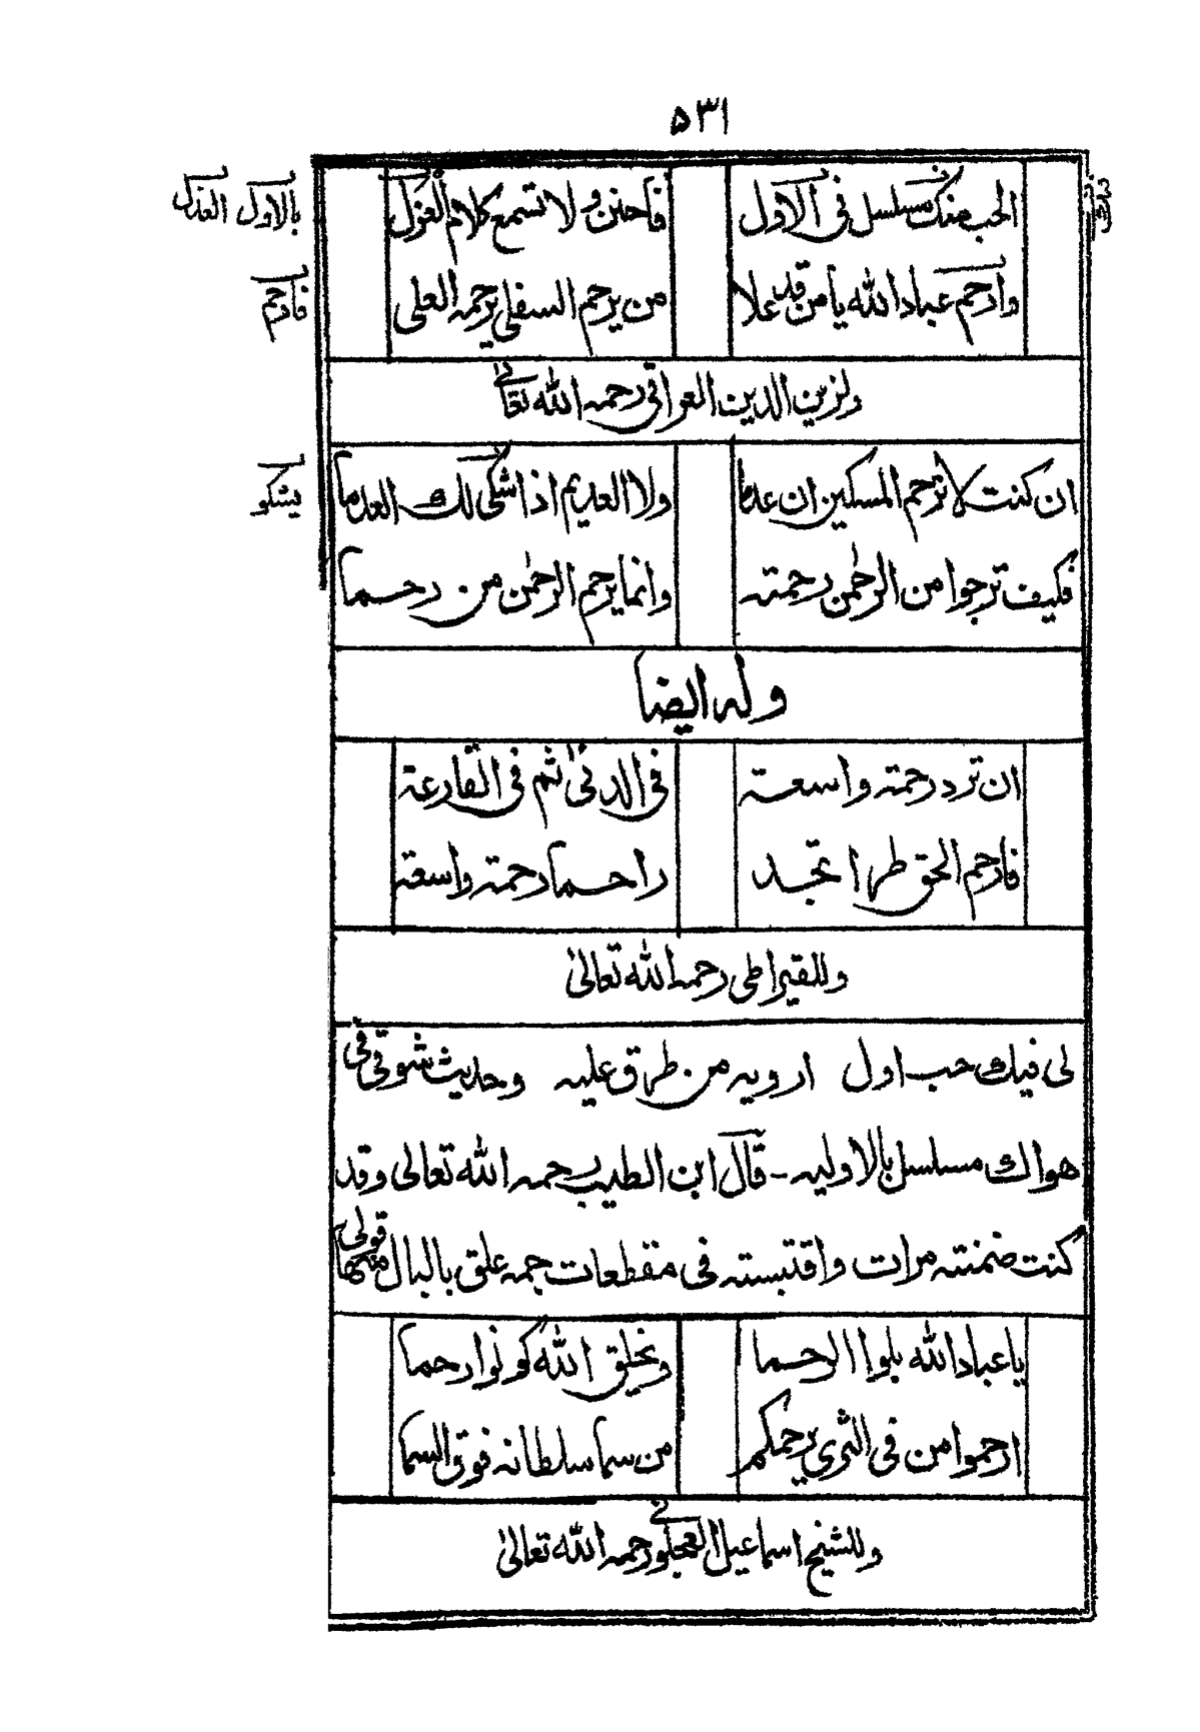 ۵۳۱
الحب منك مسلسل فى الاول فاحنن ولا تسمع كلام العزل
بالاول العذل
وارحم عباد الله يا من قد علا من يرحم السفلى يرحمه العلى
فارحم
ولزين الدين العراقى رحمه الله تعالى
ان كنت لا ترحم المسكين ان عدما ولا العديم اذا شكى لك العدما
يشكو
فكيف ترجوا من الرحمٰن رحمته وانما يرحم الرحمٰن من رحما
وله ايضا
ان ترد رحمة واسعة فى الدنى ثم فى القارعة
فارحم الخق طرا تجد راحما رحمة واسعة
وللقيراطى رحمه الله تعالىٰ
لى فيك حب اول ارويه من طرق عليه وحديث شوقى فى
هواك مسلسل بالاوليه - قال ابن الطيب رحمه الله تعالى وقد
كنت ضمنته مرات واقتبسته فى مقطعات جمه علق بالبال منها قولى
يا عباد الله بلوا الرحما وبخلق الله كونوا رحما
ارحموا من فى الثرى يرحمكم من سما سلطانه فوق السما
وللشيخ اسماعيل العجلونى رحمه الله تعالىٰ